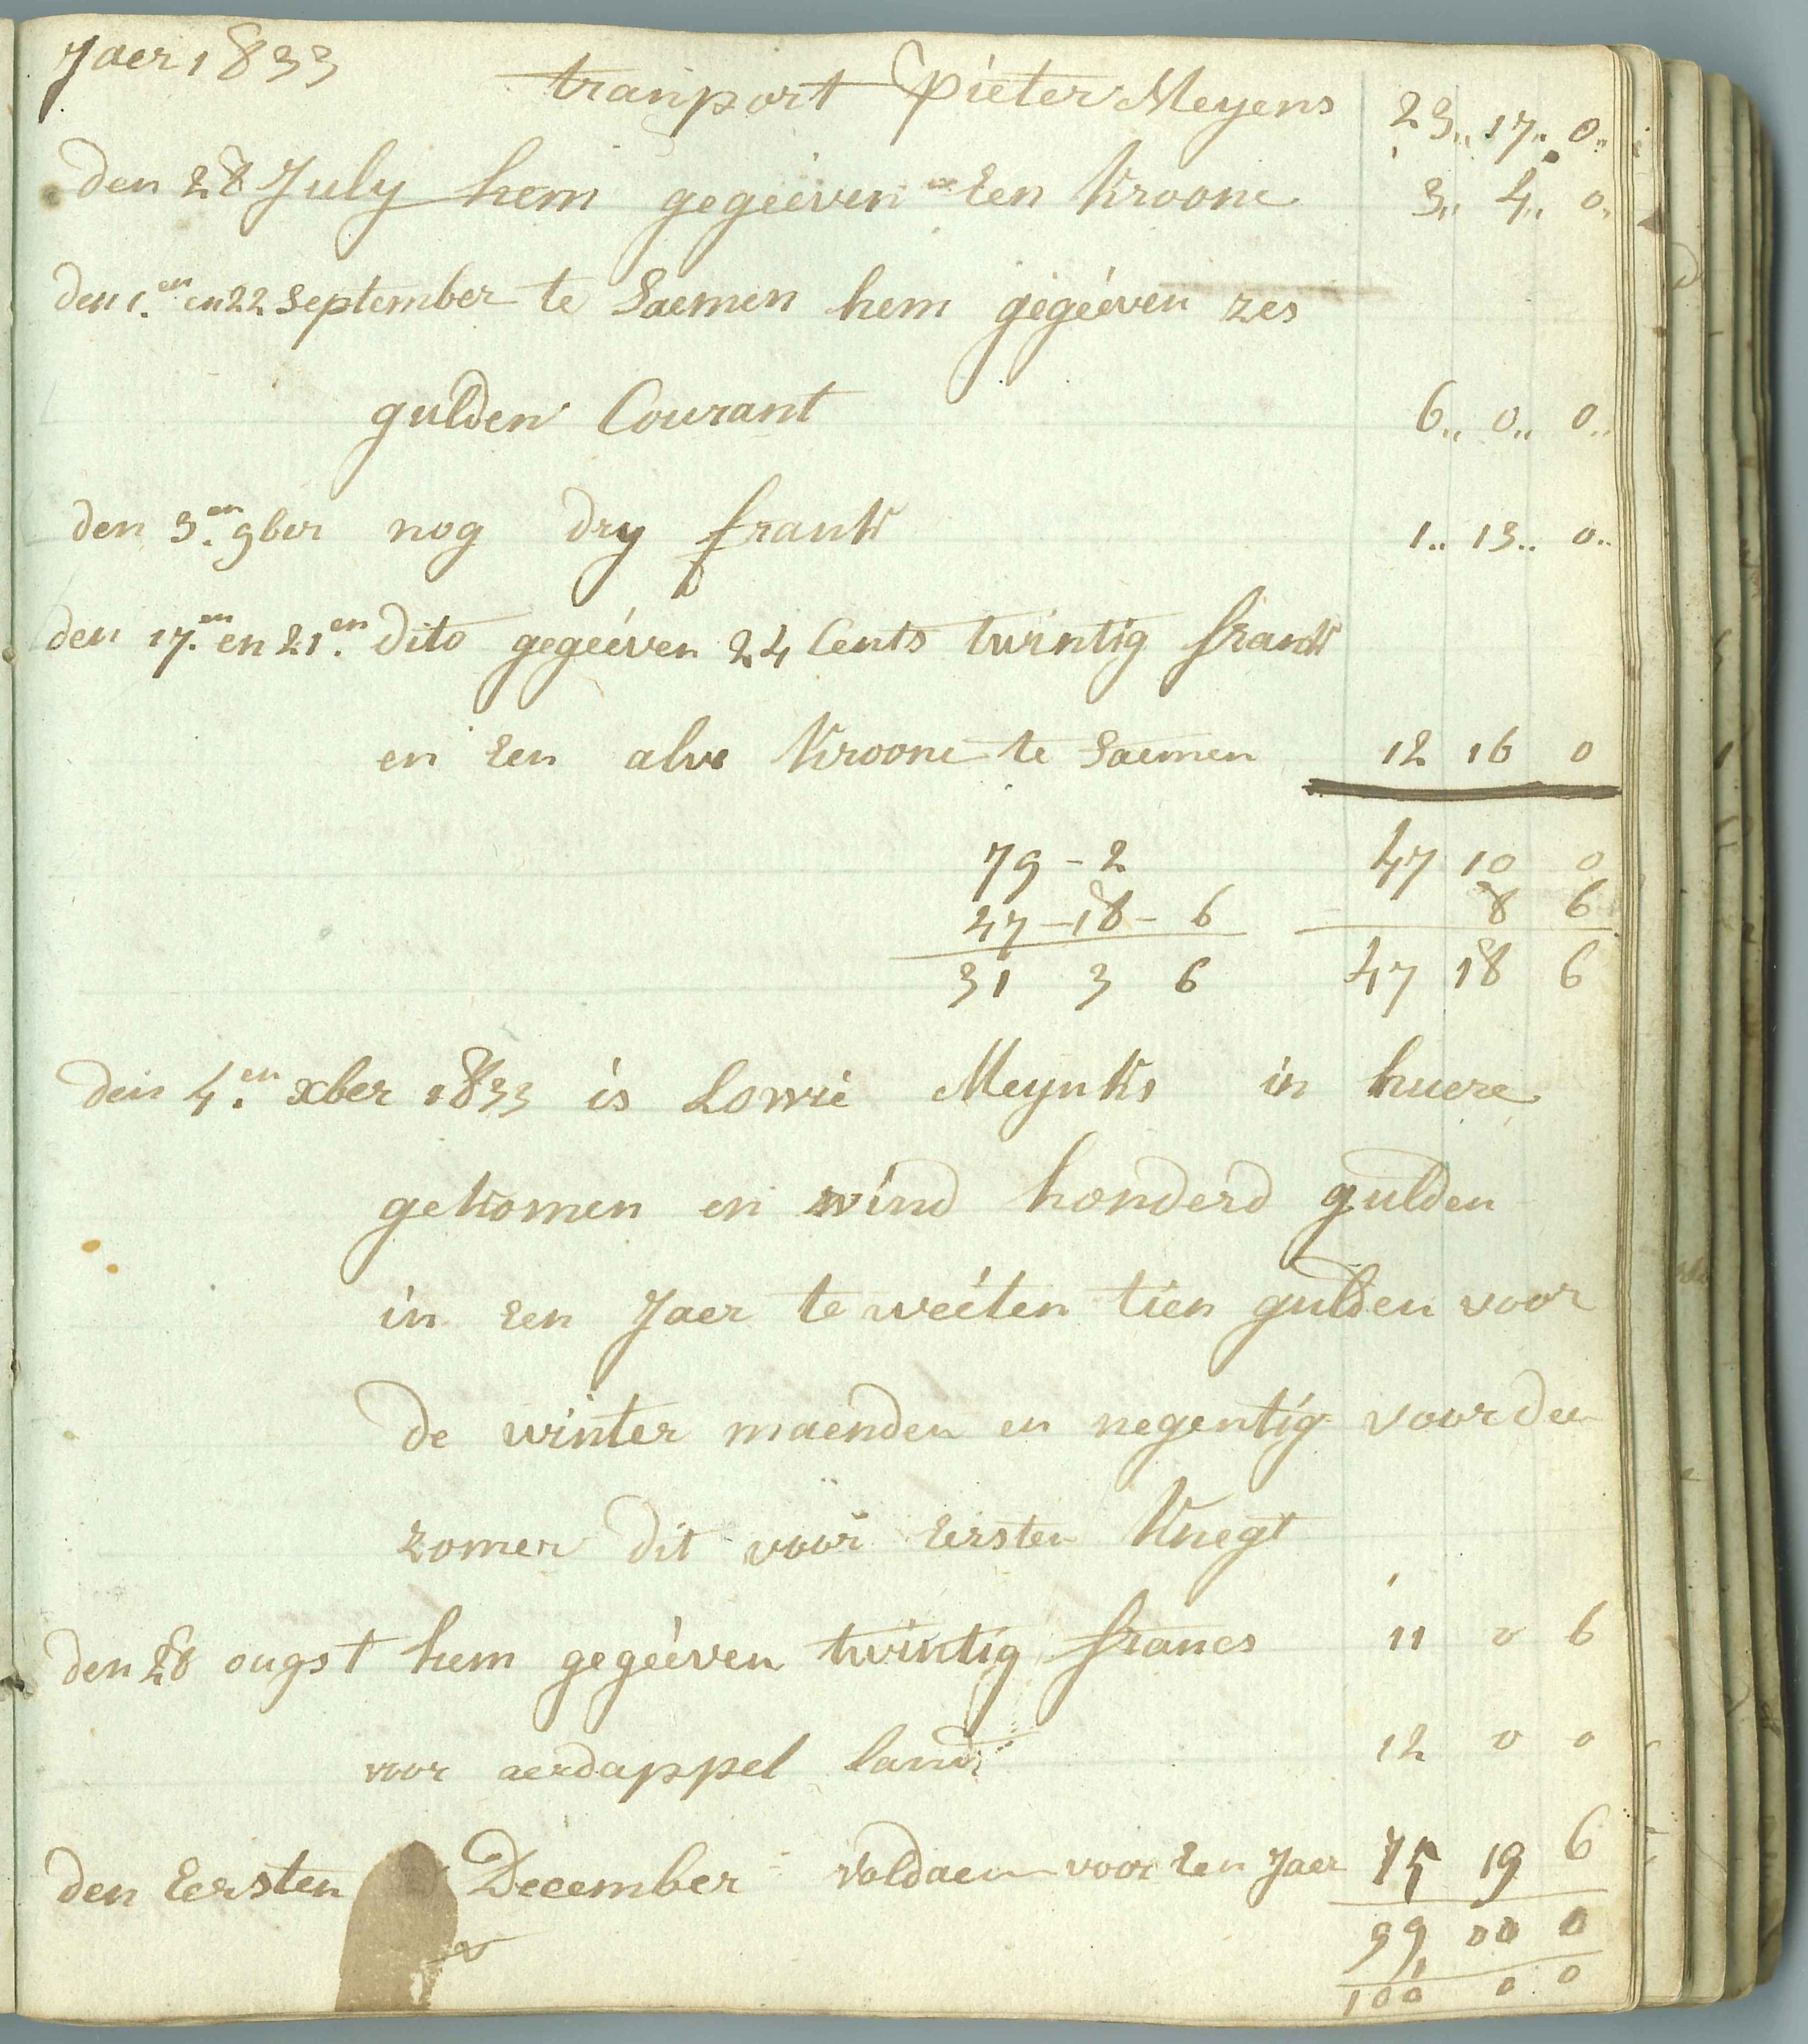 Jaer 1833
tranport Pieter Meyens 23,, 17,, 0,,
den 28 July hem gegeéven een Kroone 3,, 4,, 0,,
den 1.en en 22 September te Saemen hem gegeéven zes
gulden Courant 6,, 0,, 0,,
den 3.en 9ber nog dry frank 1,, 13,, 0,,
den 17.en en 21.en dito gegeéven 24 Cents twintig frank
en een alve Kroone te Saemen 12 16 0
79 - 2 47 10 0
8 6
47 - 18 - 6
31 3 6 47 18 6
den 4.en xber 1833 is Lowie Meynks in huere
gekomen en wind honderd gulden
in een Jaer te weéten tien gulden voor
de winter maenden en negentig voor den
zomer dit voor Eersten Knegt
den 28 ougst hem gegeéven twintig francs 11 0 6
voor aerdappel land 12 0 0
den Eersten December voldaen voor een Jaer 75 19 6
99 00 0
100 0 0